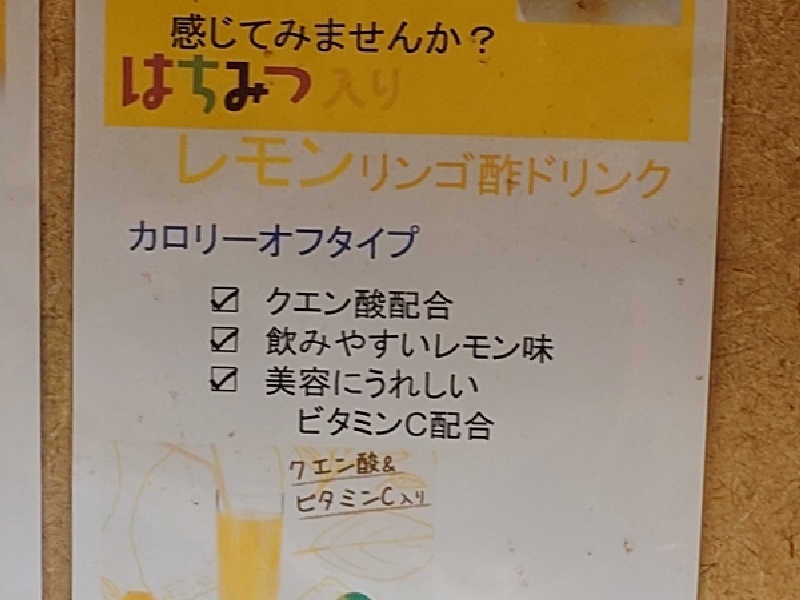 感じてみませんか？
はちみつ入り
レモンリンゴ酢ドリンク
カロリーオフタイプ
☑ クエン酸配合
☑ 飲みやすいレモン味
☑ 美容にうれしい
ビタミンC配合
クエン酸&
ビタミンC入り